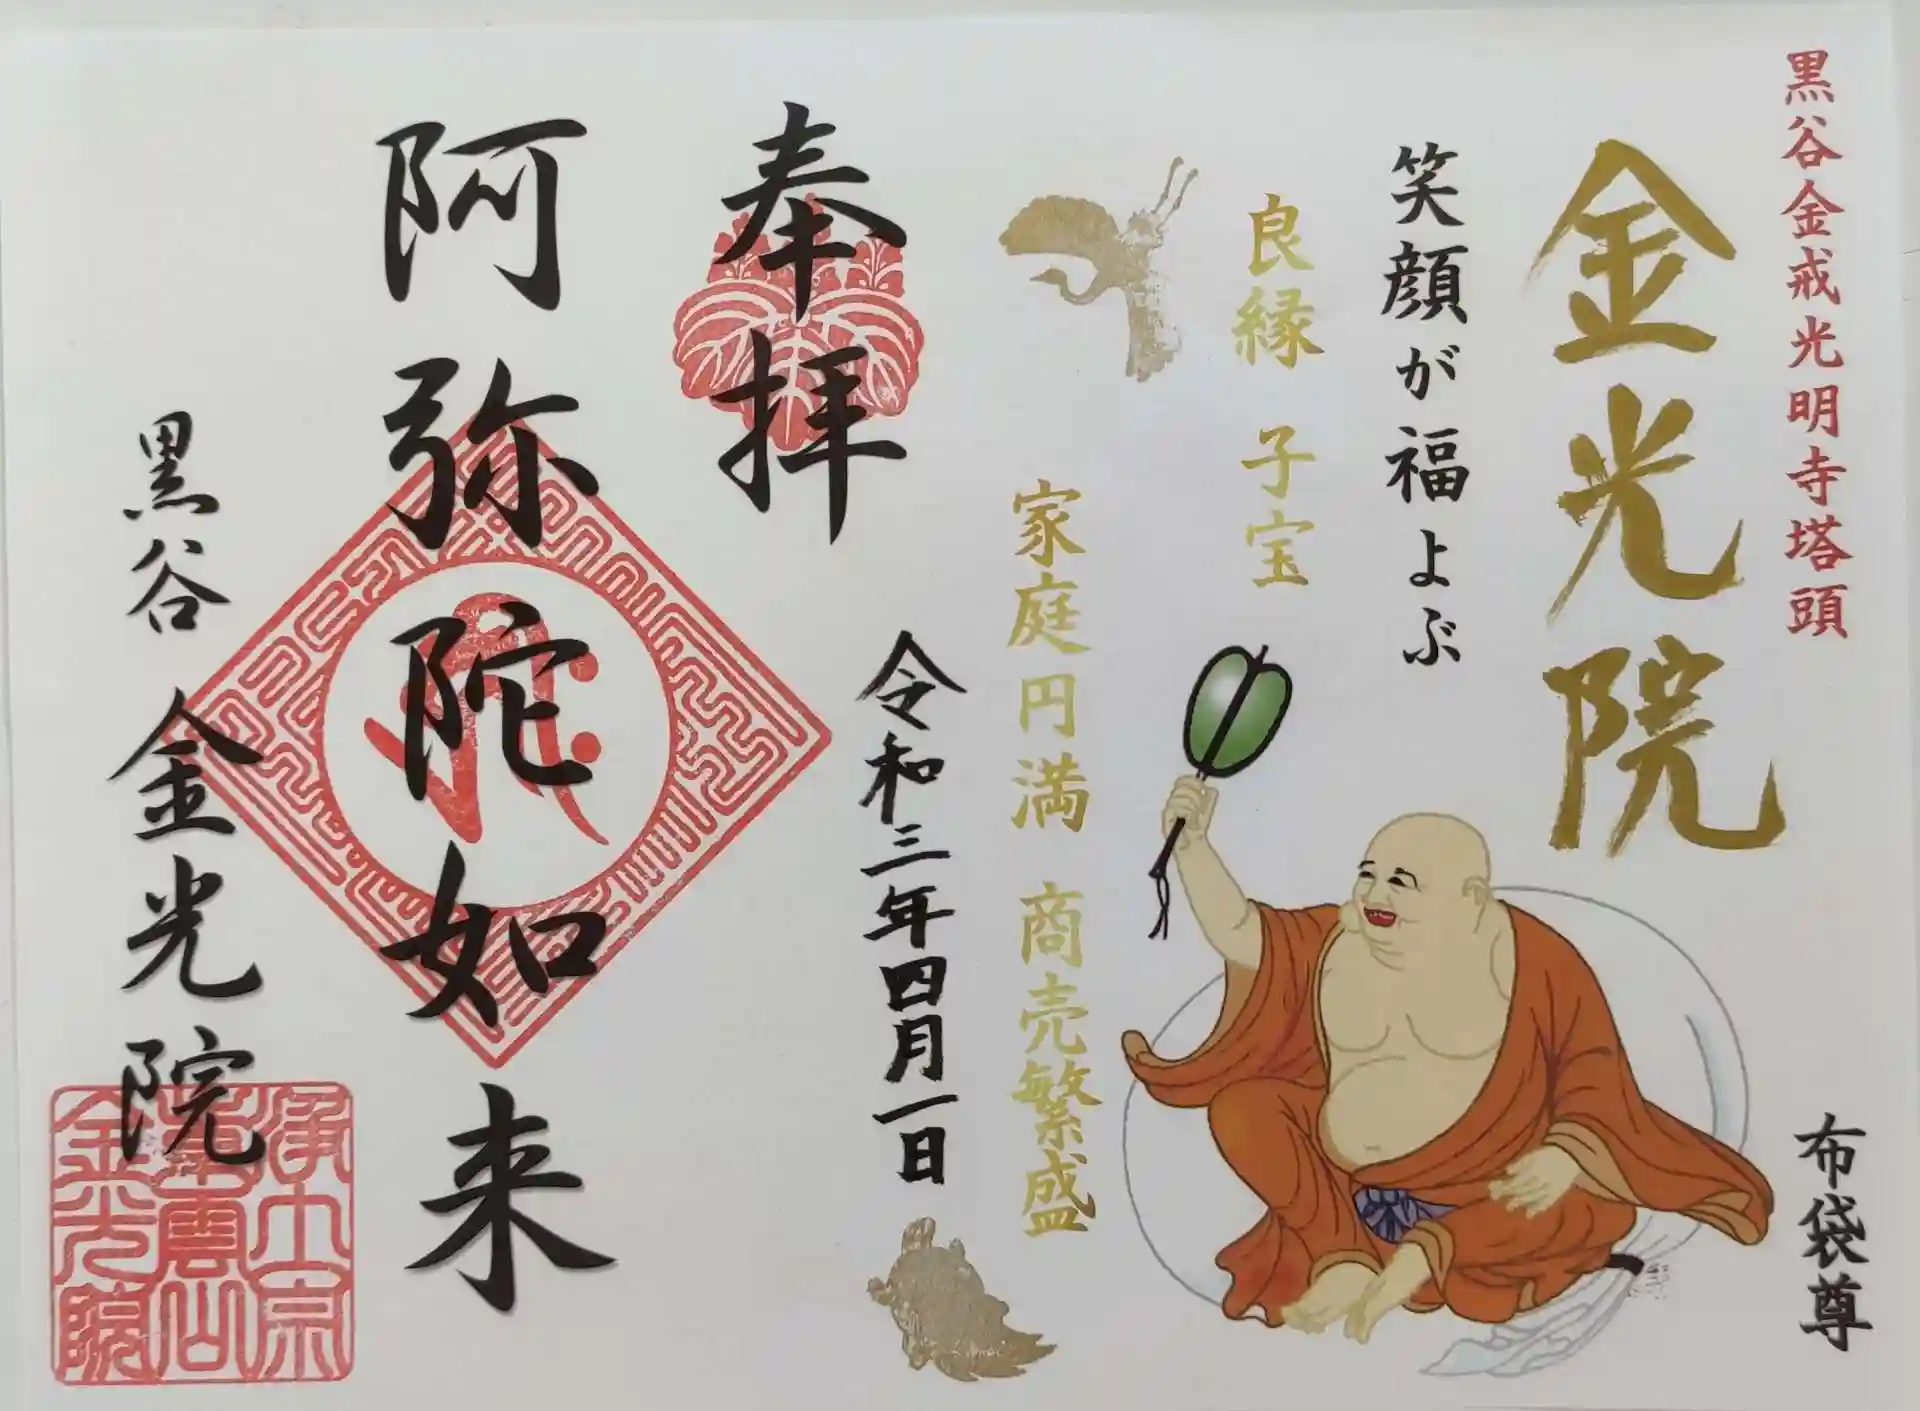 黒谷金戒光明寺塔頭
金光院
笑顔が福よぶ
布袋尊
良縁 子宝
家庭円満 商売繁盛
奉拝
令和三年四月一日
阿弥陀如来
黒谷 金光院
浄土宗
紫雲山
金光院